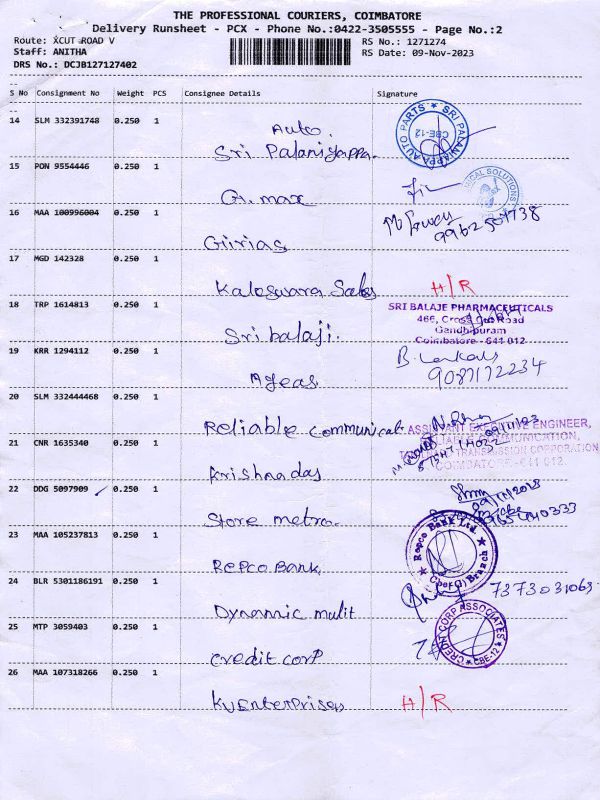 THE PROFESSIONAL COURIERS, COIMBATORE
Delivery Runsheet - PCX - Phone No.:0422-3505555 - Page No.:2
Route: XCUT ROAD V
Staff: ANITHA
DRS No.: DCJB127127402
RS No.: 1271274
RS Date: 09-Nov-2023
S No Consignment No Weight PCS Consignee Details Signature
14 SLM 332391748 0.250 1
Auto.
Sri Palaniyappa.
SRI PALANIAPPA AUTO PARTS CBE-12
15 PON 9554446 0.250 1
G. max
ICAL SOLUTIONS
16 MAA 100996004 0.250 1
Girias
17 MGD 142328 0.250 1
Kaleswara Sales
H/R
18 TRP 1614813 0.250 1
Sri balaji.
SRI BALAJE PHARMACEUTICALS
466, Cross Cut Road
Gandhipuram
Coimbatore - 641 012
19 KRR 1294112 0.250 1
Ageas
9087172234
20 SLM 332444468 0.250 1
Reliable communicat.
ASSISTANT EXECUTIVE ENGINEER,
TRANSMISSION CORPORATION
COIMBATORE-641 012
21 CNR 1635340 0.250 1
Krishnadas
22 DDG 5097909 0.250 1
Store metro.
23 MAA 105237813 0.250 1
Repco Bank
Repco Bank Ltd. Branch
24 BLR 5301186191 0.250 1
Dynamic mulit
7373031063
25 MTP 3059403 0.250 1
credit corp
CREDIT CORP ASSOCIATES CBE-12
26 MAA 107318266 0.250 1
KV Enterprises
H/R